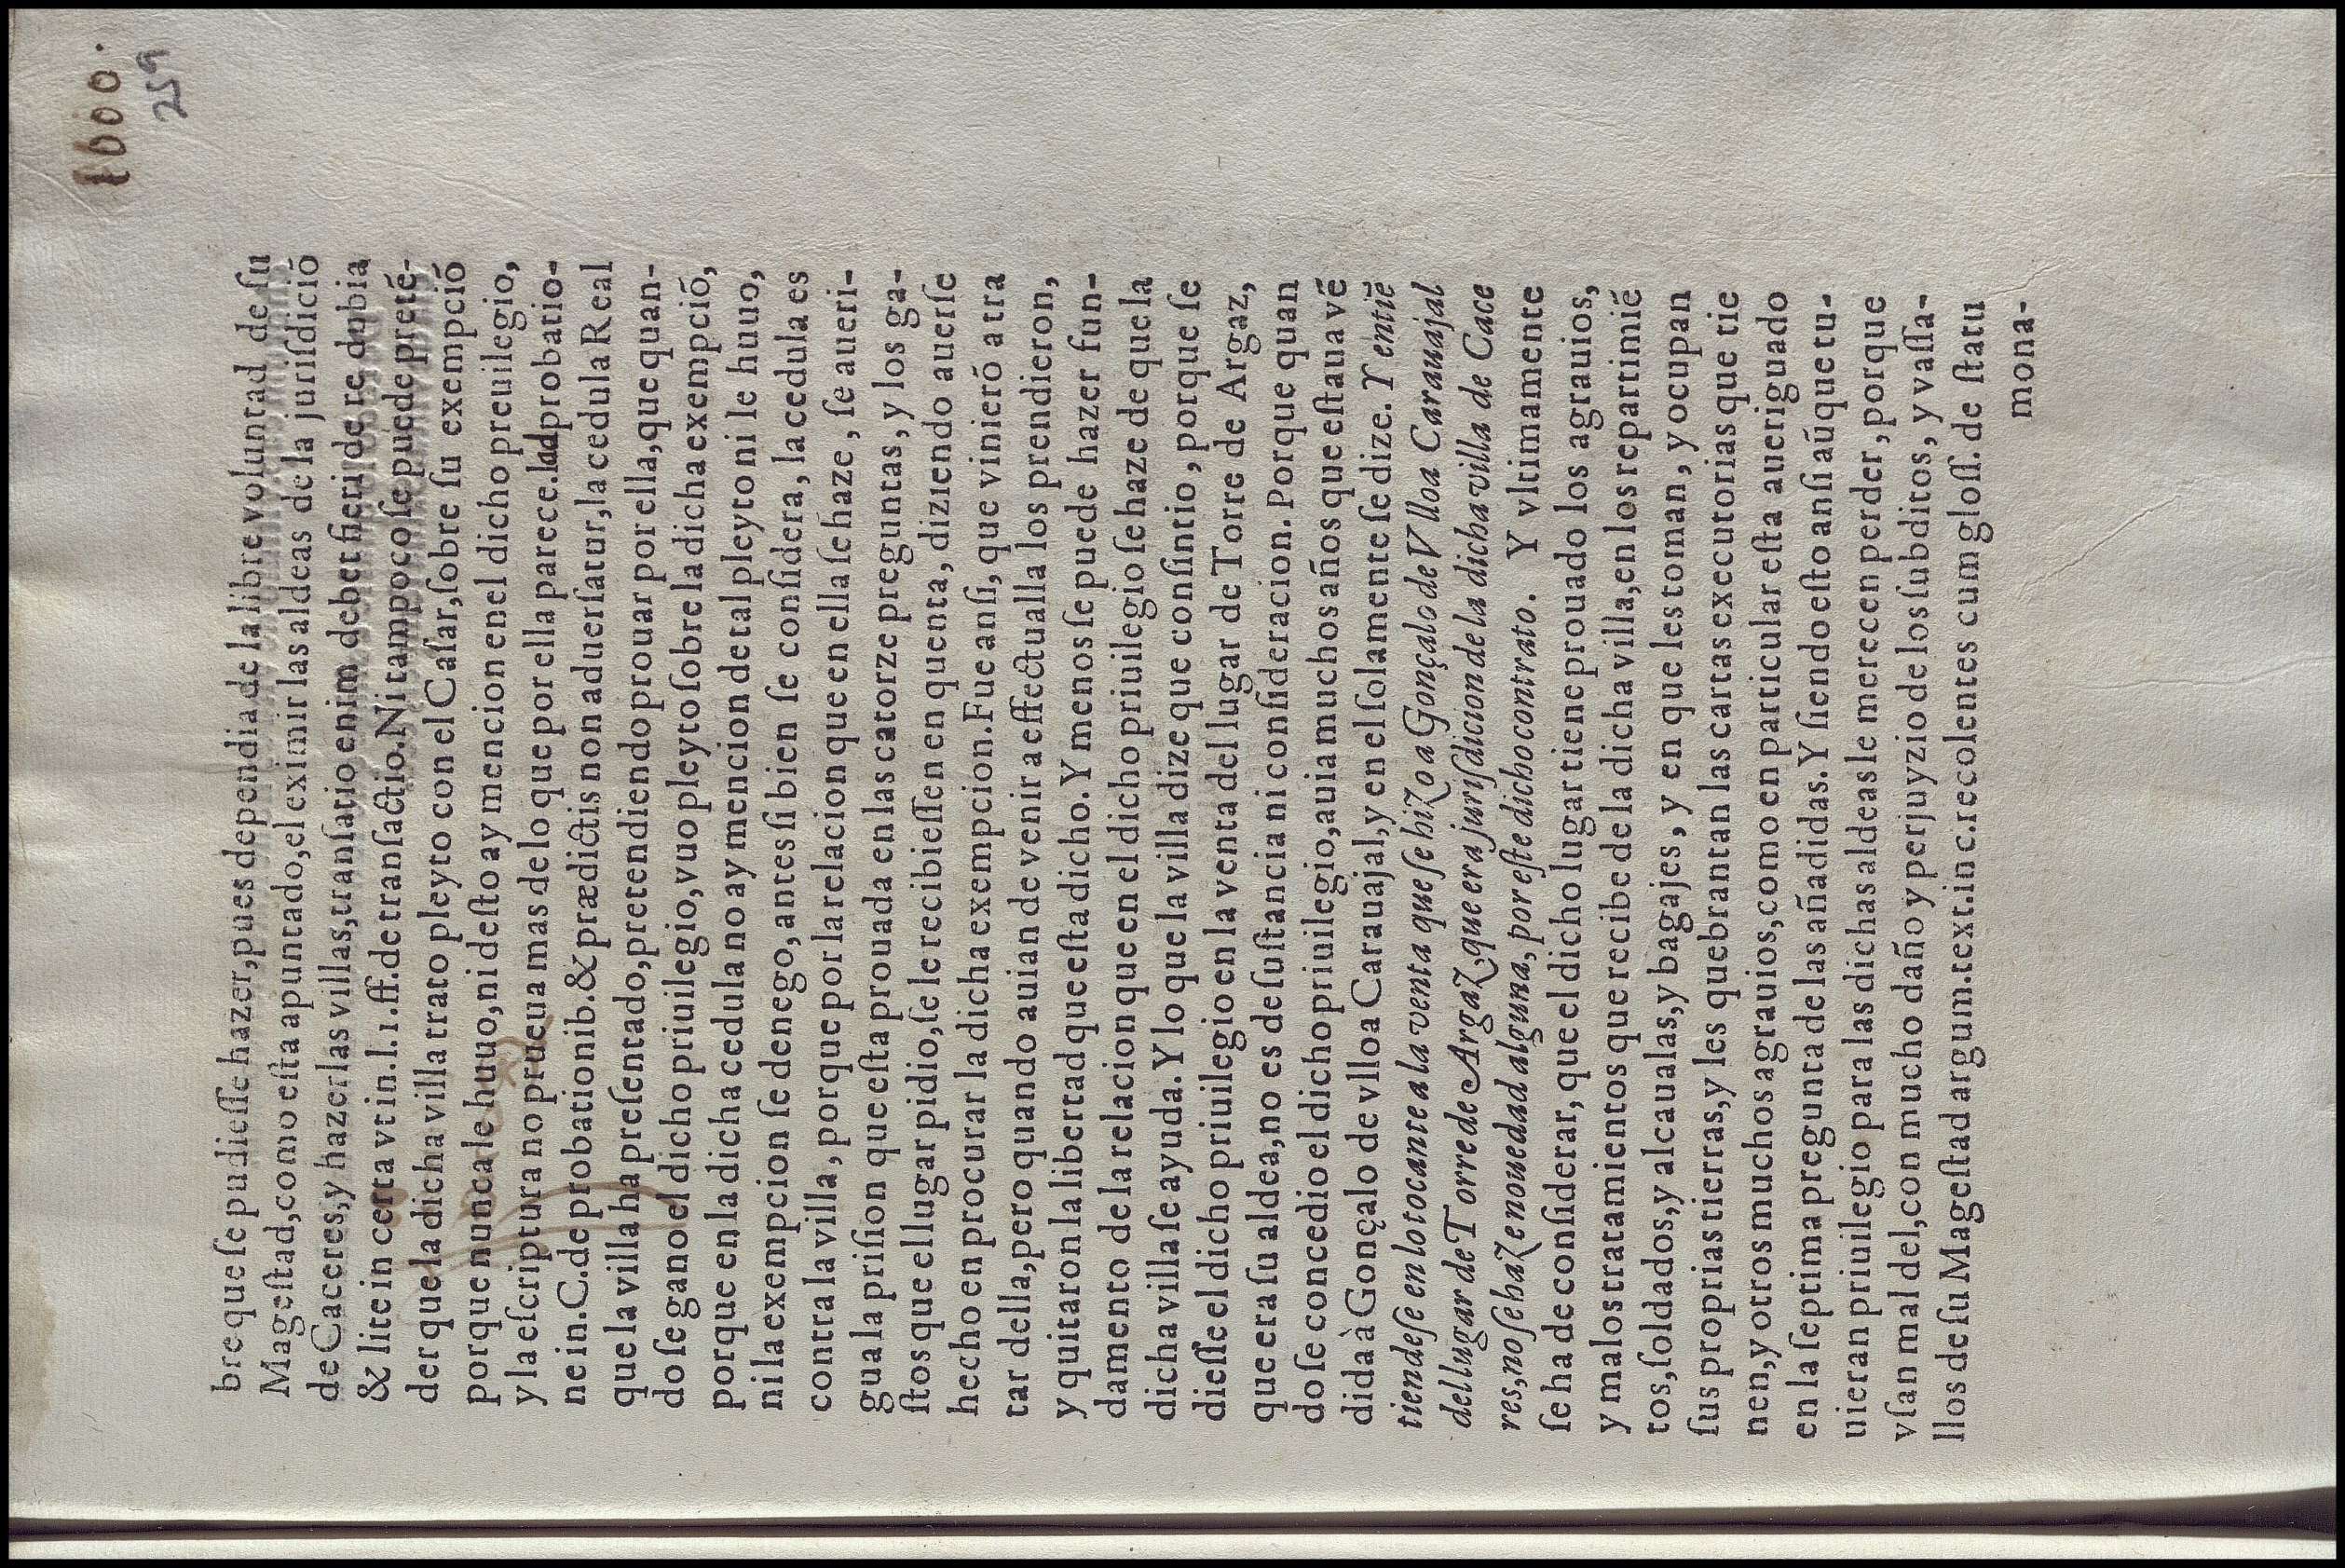 1000.
259
bre que ſe pudieſſe hazer, pues dependia de la libre voluntad de ſu
Mageſtad, como eſta apuntado, el eximir las aldeas de la juriſdició
de Caceres, y hazerlas villas, tranſatio enim debet fieri de re dubia
& lite in certa vt in.l.1.ff.de tranſactio. Ni tampoco ſe puede preté-
der que la dicha villa trato pleyto con el Caſar, ſobre ſu exempció
porque nunca le huuo, ni deſto ay mencion en el dicho preuilegio,
y la eſcriptura no prueua mas de lo que por ella parece. l.ad probatio-
ne in.C.de probationib.& prædictis non aduerſatur, la cedula Real
que la villa ha preſentado, pretendiendo prouar por ella, que quan-
do ſe gano el dicho priuilegio, vuo pleyto ſobre la dicha exempció,
porque en la dicha cedula no ay mencion de tal pleyto ni le huuo,
ni la exempcion ſe denego, antes ſi bien ſe conſidera, la cedula es
contra la villa, porque por la relacion que en ella ſe haze, ſe aueri-
gua la priſion que eſta prouada en las catorze preguntas, y los ga-
ſtos que el lugar pidio, ſe le recibieſſen en quenta, diziendo auerſe
hecho en procurar la dicha exempcion. Fue anſi, que vinieró a tra
tar della, pero quando auian de venir a effectualla los prendieron,
y quitaron la libertad que eſta dicho. Y menos ſe puede hazer fun-
damento de la relacion que en el dicho priuilegio ſe haze de que la
dicha villa ſe ayuda. Y lo que la villa dize que conſintio, porque ſe
dieſſe el dicho priuilegio en la venta del lugar de Torre de Argaz,
que era ſu aldea, no es de ſuſtancia ni conſideracion. Porque quan
do ſe concedio el dicho priuilegio, auia muchos años que eſtaua vē
dida à Gonçalo de vlloa Carauajal, y en el ſolamente ſe dize. Y entiē
tiendeſe en lo tocante a la venta que ſe hizo a Gonçalo de Vlloa Carauajal
del lugar de Torre de Argaz, que era juriſdicion de la dicha villa de Cace
res, no ſe haze nouedad alguna, por eſte dicho contrato. Y vltimamente
ſe ha de conſiderar, que el dicho lugar tiene prouado los agrauios,
y malos tratamientos que recibe de la dicha villa, en los repartimié
tos, ſoldados, y alcaualas, y bagajes, y en que les toman, y ocupan
ſus proprias tierras, y les quebrantan las cartas executorias que tie
nen, y otros muchos agrauios, como en particular eſta aueriguado
en la ſeptima pregunta de las añadidas. Y ſiendo eſto anſi aúque tu-
uieran priuilegio para las dichas aldeas le merecen perder, porque
vſan mal del, con mucho daño y perjuyzio de los ſubditos, y vaſſa-
llos de ſu Mageſtad argum.text.in c.recolentes cum gloſſ. de ſtatu
mona-